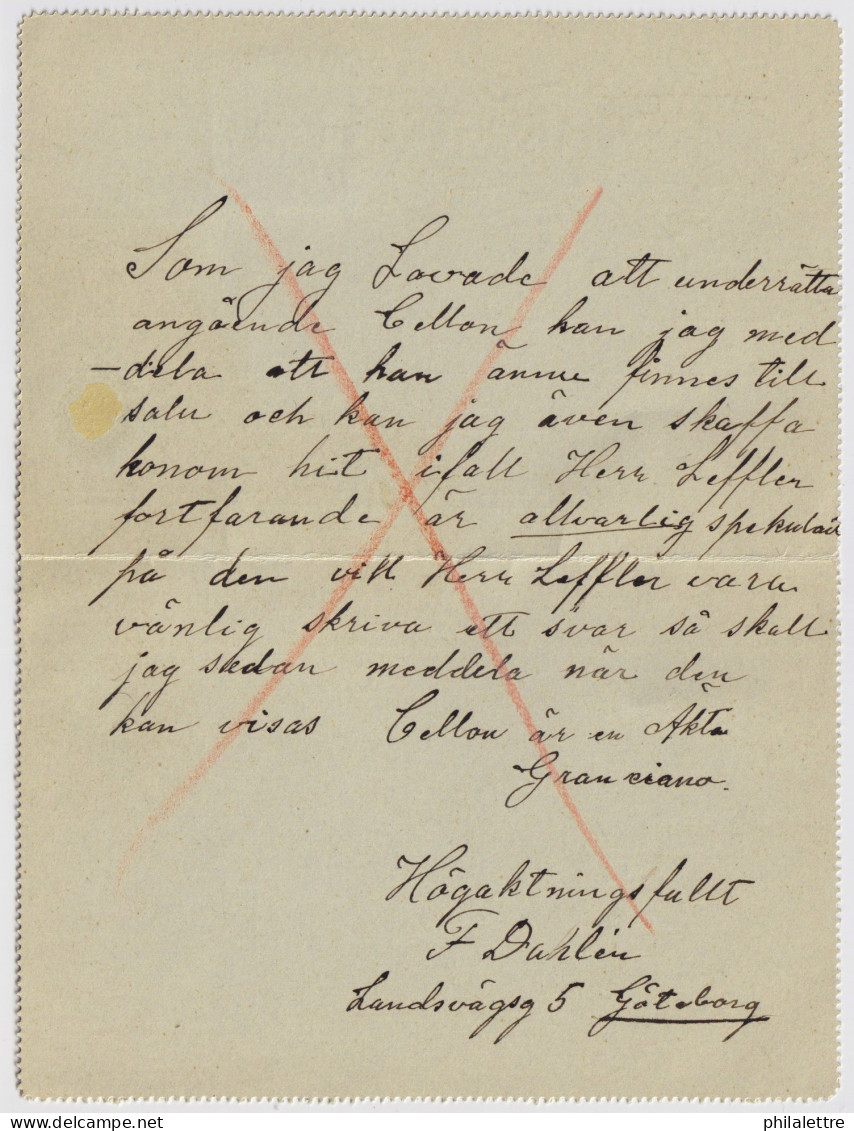 Som jag Lovade att underrätta
angående Cellon kan jag med
-dela att han ännu finnes till
salu och kan jag även skaffa
honom hit ifall Herr Leffler
fortfarande är allvarlig spekulant
på den vill Herr Leffler vara
vänlig skriva ett svar så skall
jag sedan meddela när den
kan visas Cellon är en Äkta
Granciano.
Högaktningsfullt
F Dahlén
Landsvägsg 5 Göteborg
philalettre